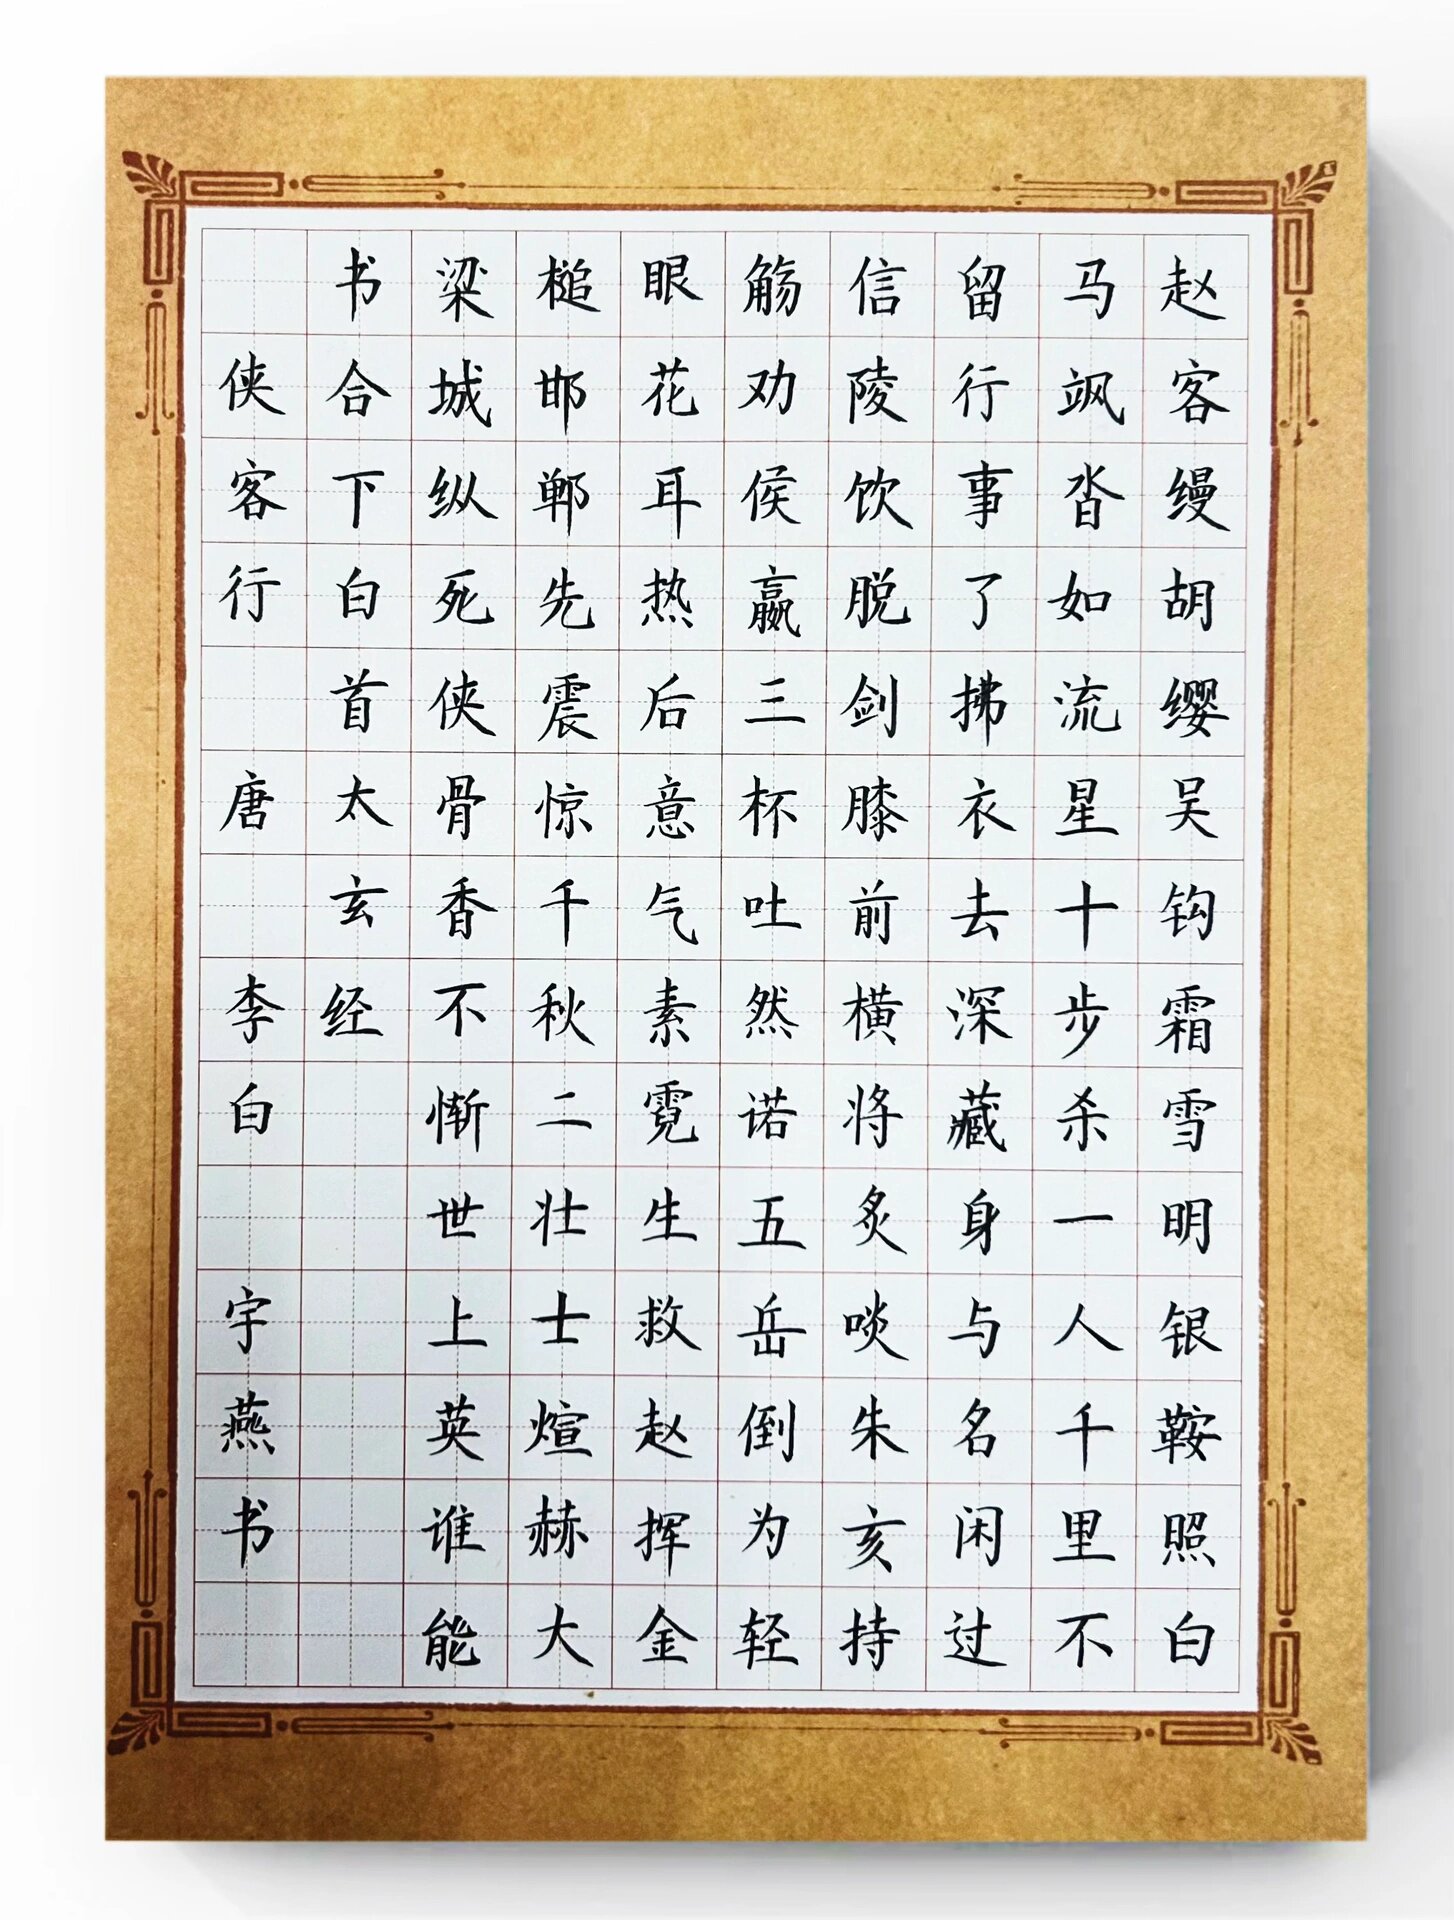 赵客缦胡缨吴钩霜雪明银鞍照白
马飒沓如流星十步杀一人千里不
留行事了拂衣去深藏身与名闲过
信陵饮脱剑膝前横将炙啖朱亥持
觞劝侯嬴三杯吐然诺五岳倒为轻
眼花耳热后意气素霓生救赵挥金
槌邯郸先震惊千秋二壮士煊赫大
梁城纵死侠骨香不惭世上英谁能
书合下白首太玄经
侠客行 唐 李白 宇燕书